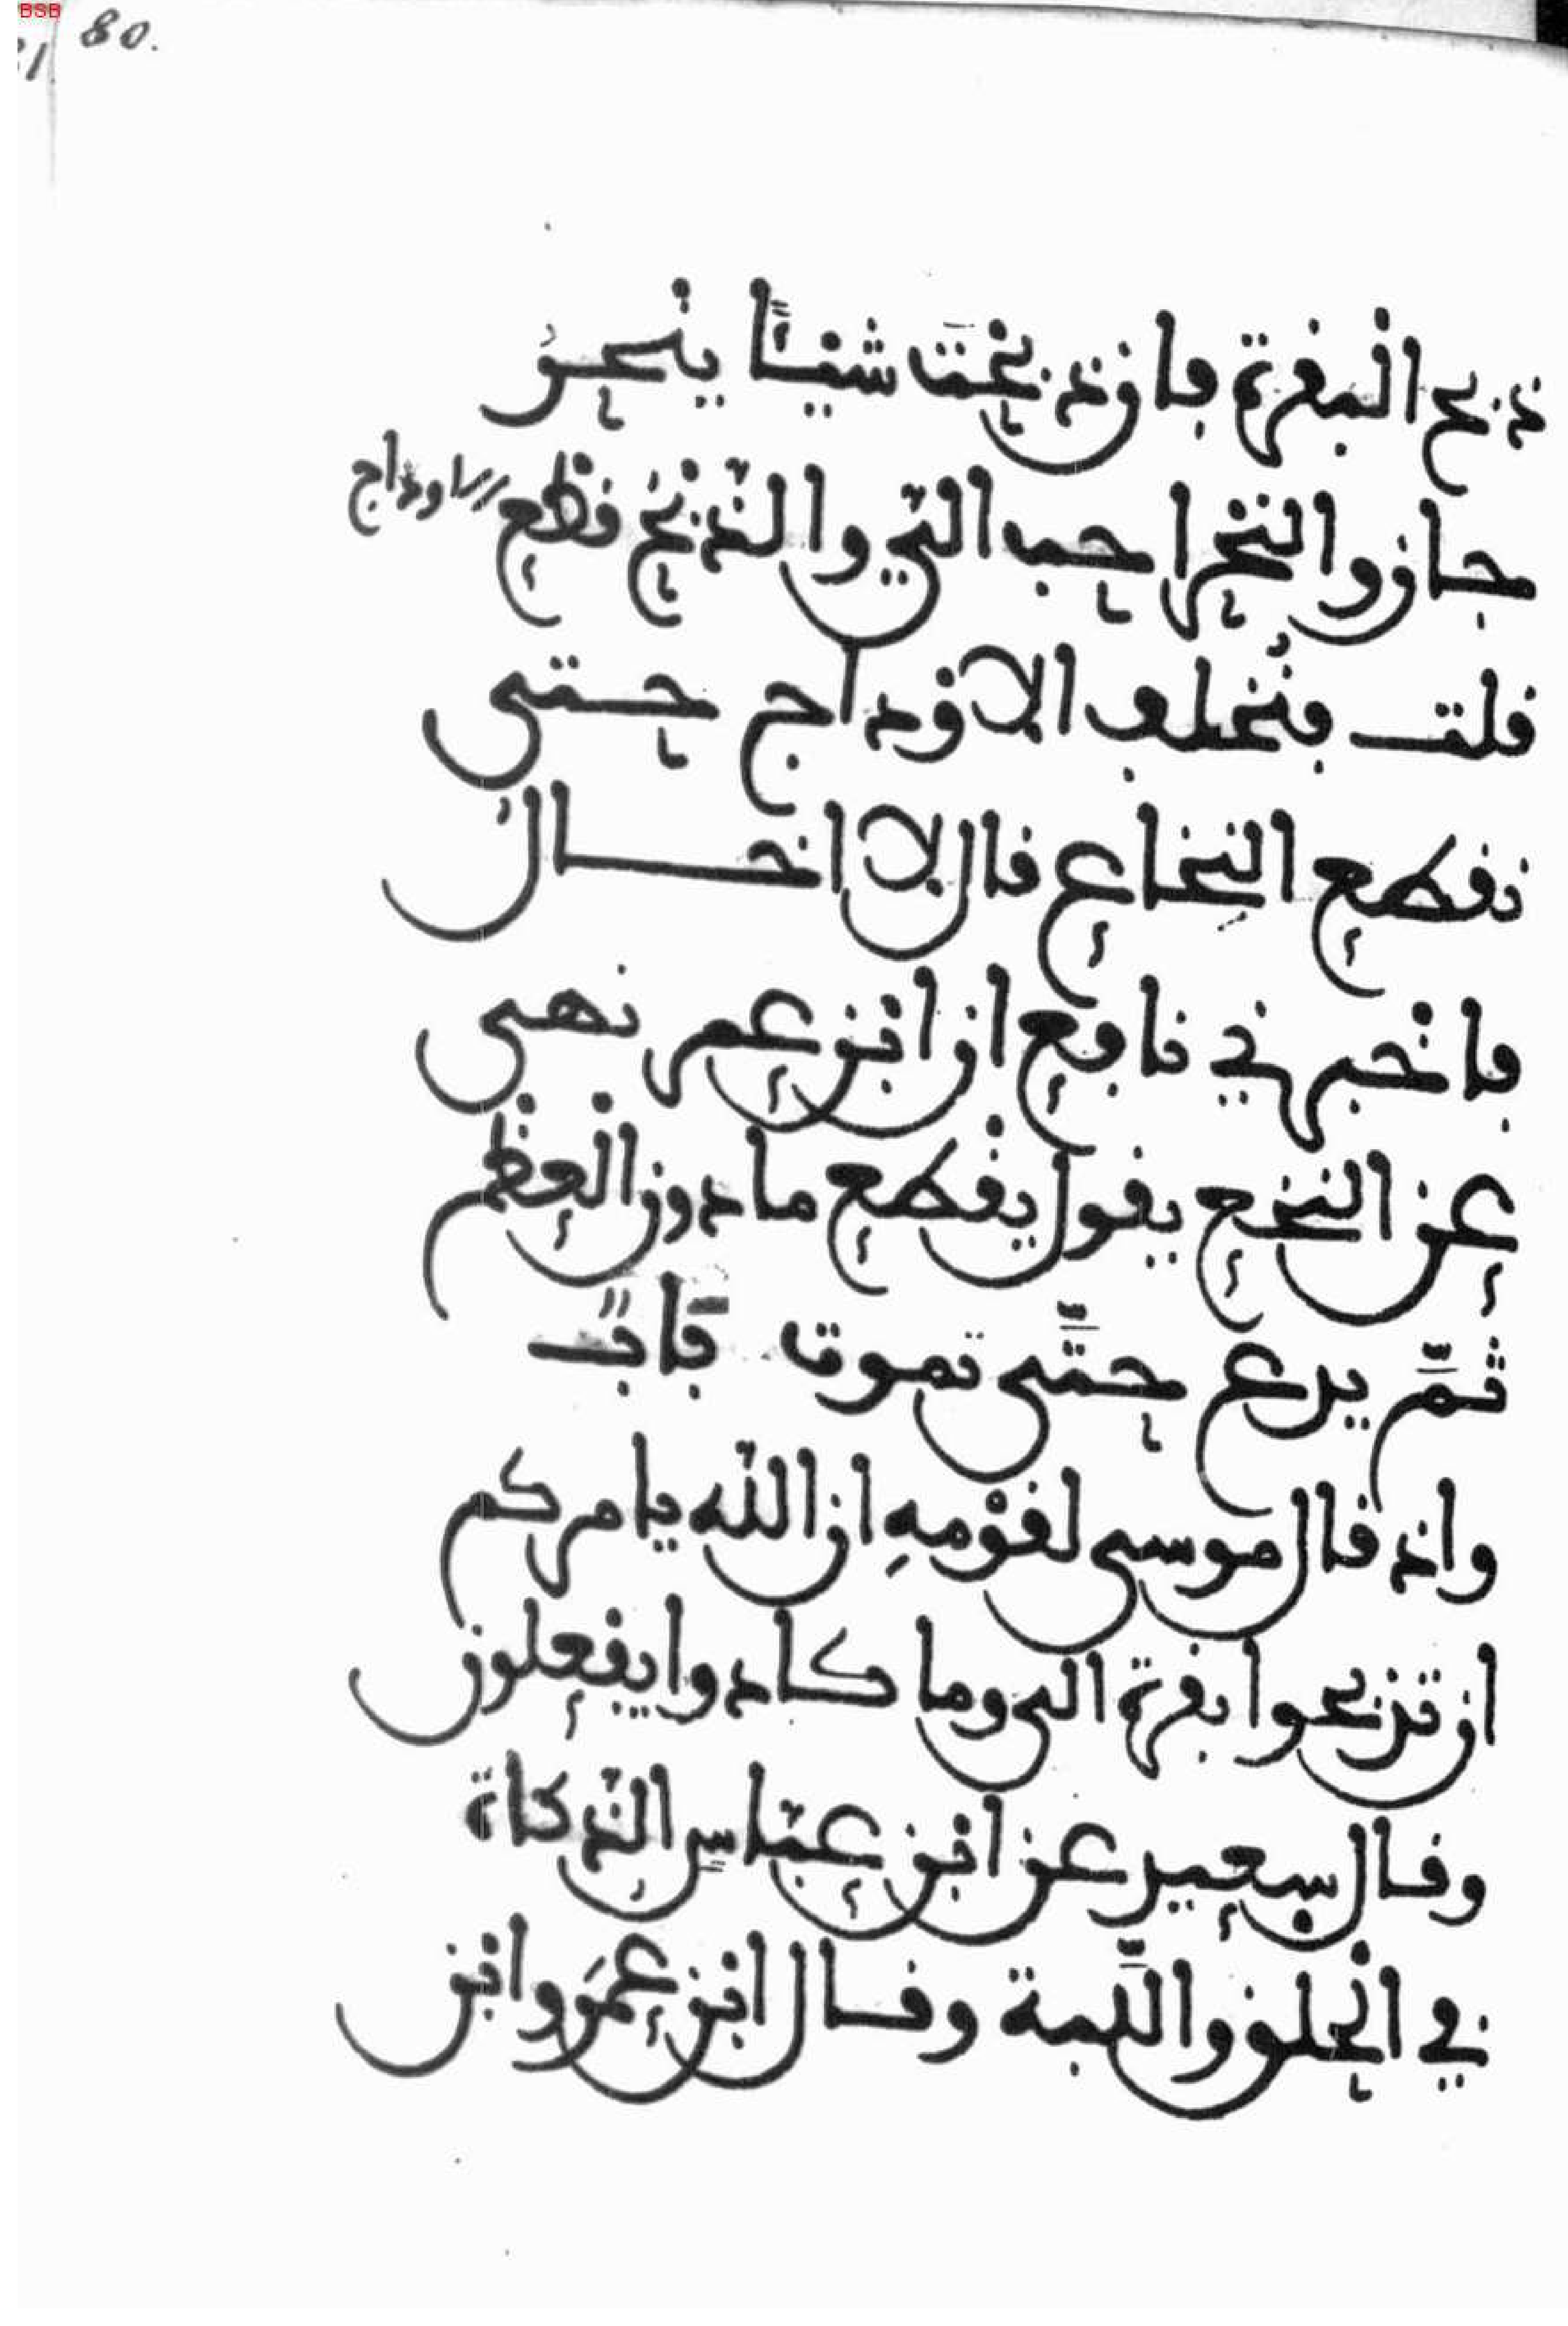 BSB
80.
ذبح البقرة فان ذبحت شيئًا ينحر
جاز والنحر احب الي والذبح قطع الاوداج
قلت فيُخلف الاوداج حتى
نقطع النخاع قال لا اخال
فاخبرني نافع ان ابن عمر نهى
عن النخع يقول يقطع ما دون العظم
ثمّ يدع حتّى تموت بابٌ
واذ قال موسى لقومهِ ان الله يامركم
ان تذبحوا بقرة الى وما كادوا يفعلون
وقال سعيد عن ابن عبّاسٍ الذّكاة
في الحلق واللّبة وقال ابن عمَر وابن